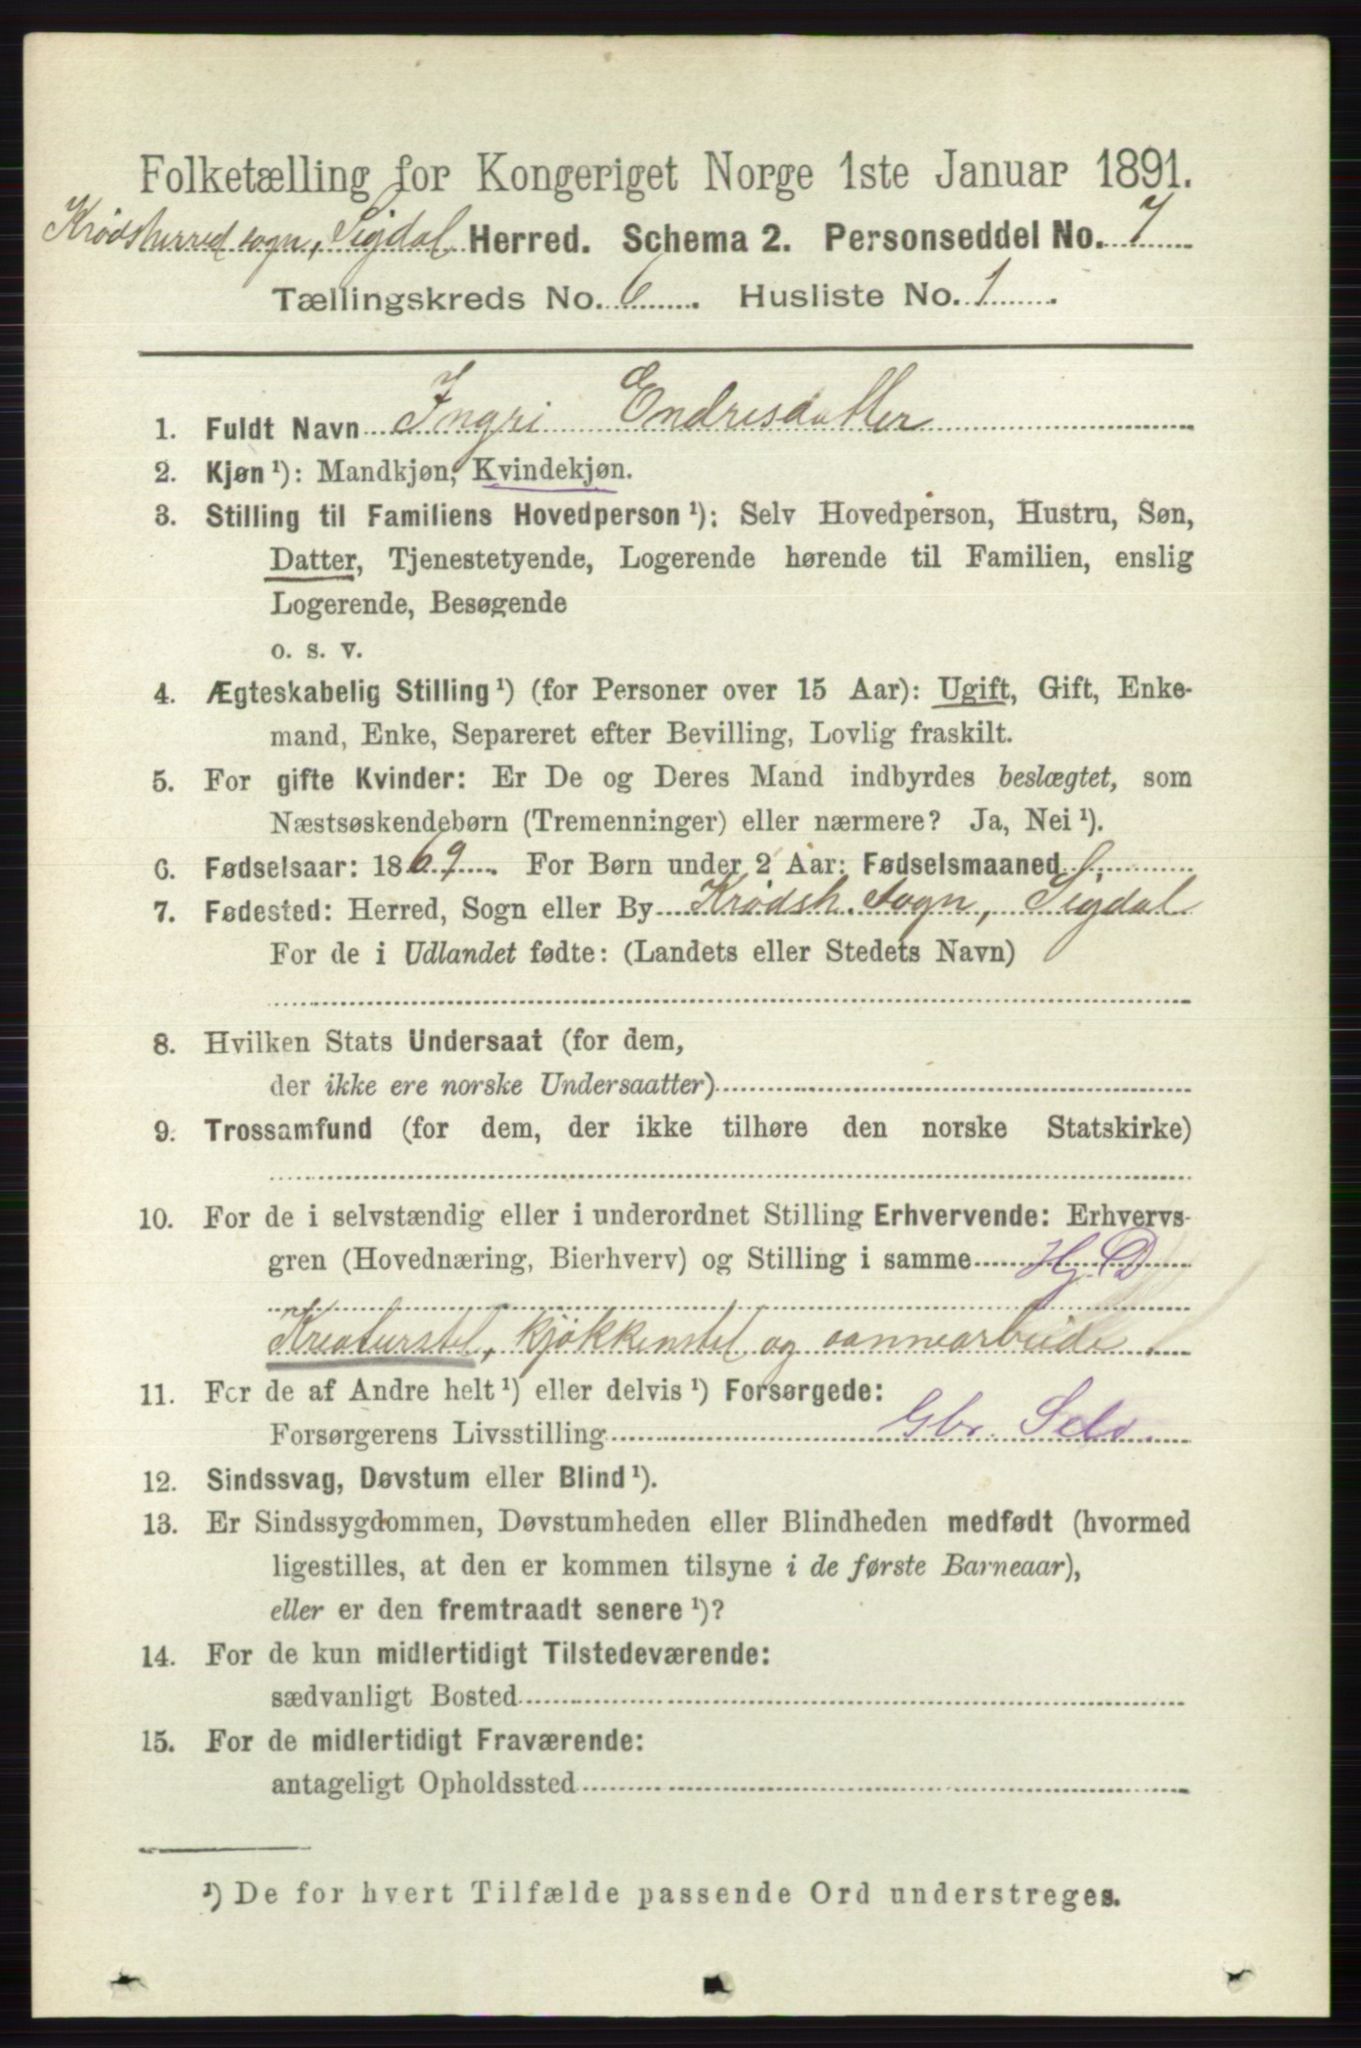 Folketælling for Kongeriget Norge 1ste Januar 1891.
Krødsherred sogn, Sigdal Herred. Schema 2. Personseddel No. 7
Tællingskreds No. 6. Husliste No. 1.
1. Fuldt Navn Ingri Endresdatter
2. Kjøn ¹): Mandkjøn, Kvindekjøn.
3. Stilling til Familiens Hovedperson ¹): Selv Hovedperson, Hustru, Søn,
Datter, Tjenestetyende, Logerende hørende til Familien, enslig
Logerende, Besøgende
o. s. v.
4. Ægteskabelig Stilling ¹) (for Personer over 15 Aar): Ugift, Gift, Enke-
mand, Enke, Separeret efter Bevilling, Lovlig fraskilt.
5. For gifte Kvinder: Er De og Deres Mand indbyrdes beslægtet, som
Næstsøskendebørn (Tremenninger) eller nærmere? Ja, Nei ¹).
6. Fødselsaar: 1869. For Børn under 2 Aar: Fødselsmaaned
7. Fødested: Herred, Sogn eller By Krødsh. sogn, Sigdal
For de i Udlandet fødte: (Landets eller Stedets Navn)
8. Hvilken Stats Undersaat (for dem,
der ikke ere norske Undersaatter)
9. Trossamfund (for dem, der ikke tilhøre den norske Statskirke)
10. For de i selvstændig eller i underordnet Stilling Erhvervende: Erhvervs-
gren (Hovednæring, Bierhverv) og Stilling i samme Hj. D
Kreaturstel, kjøkkenstel og aannearbeide.
11. For de af Andre helt ¹) eller delvis ¹) Forsørgede:
Forsørgerens Livsstilling Gbr. Selv.
12. Sindssvag, Døvstum eller Blind ¹).
13. Er Sindssygdommen, Døvstumheden eller Blindheden medfødt (hvormed
ligestilles, at den er kommen tilsyne i de første Barneaar),
eller er den fremtraadt senere ¹)?
14. For de kun midlertidigt Tilstedeværende:
sædvanligt Bosted
15. For de midlertidigt Fraværende:
antageligt Opholdssted
¹) De for hvert Tilfælde passende Ord understreges.